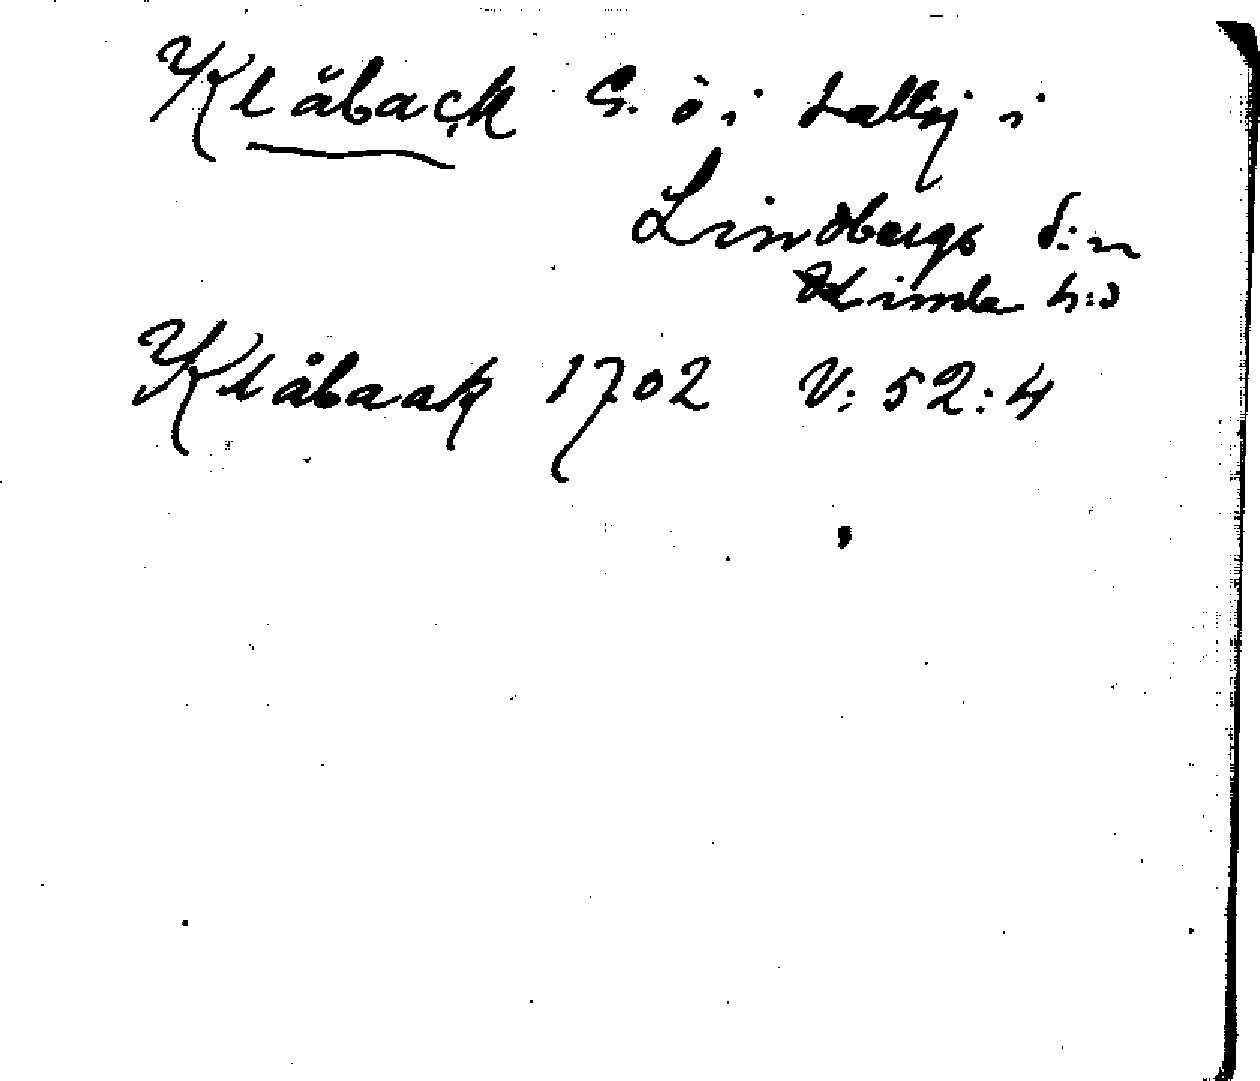 Klåback G. ö. i Valby i
Lindbergs s:n
Himle h:d
Klåbaak 1702 V: 52:4